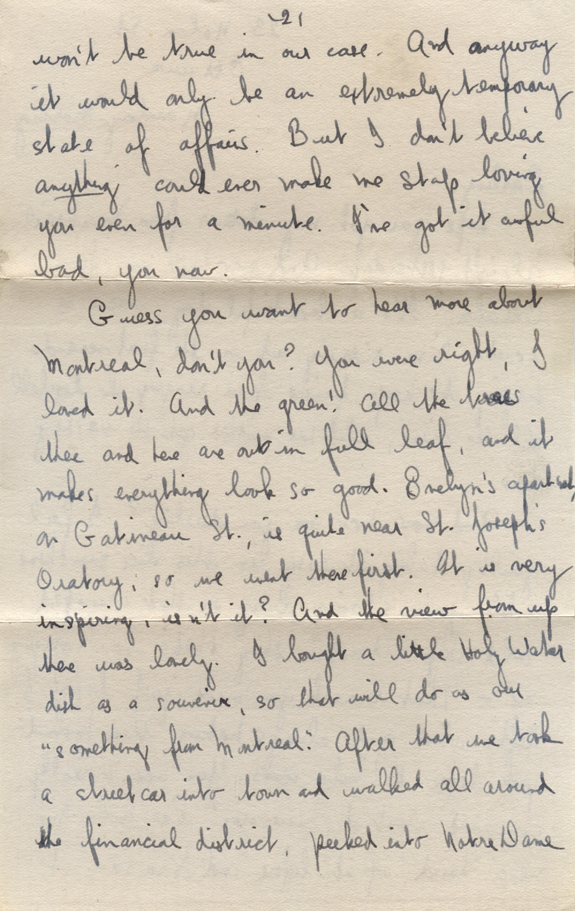 -2-
won't be true in our case. And anyway
it would only be an extremely temporary
state of affairs. But I don't believe
anything could ever make me stop loving
you even for a minute. I've got it awful
bad, you now.
Guess you want to hear more about
Montreal, don't you? You were right, I
loved it. And the green! All the trees
there and here are out in full leaf, and it
makes everything look so good. Evelyn's apartment,
on Gatineau St., is quite near St. Joseph's
Oratory, so we went there first. It is very
inspiring, isn't it? And the view from up
there was lovely. I bought a little Holy Water
dish as a souvenir, so that will do as our
"something from Montreal". After that we took
a streetcar into town and walked all around
the financial district, peeked into Notre Dame